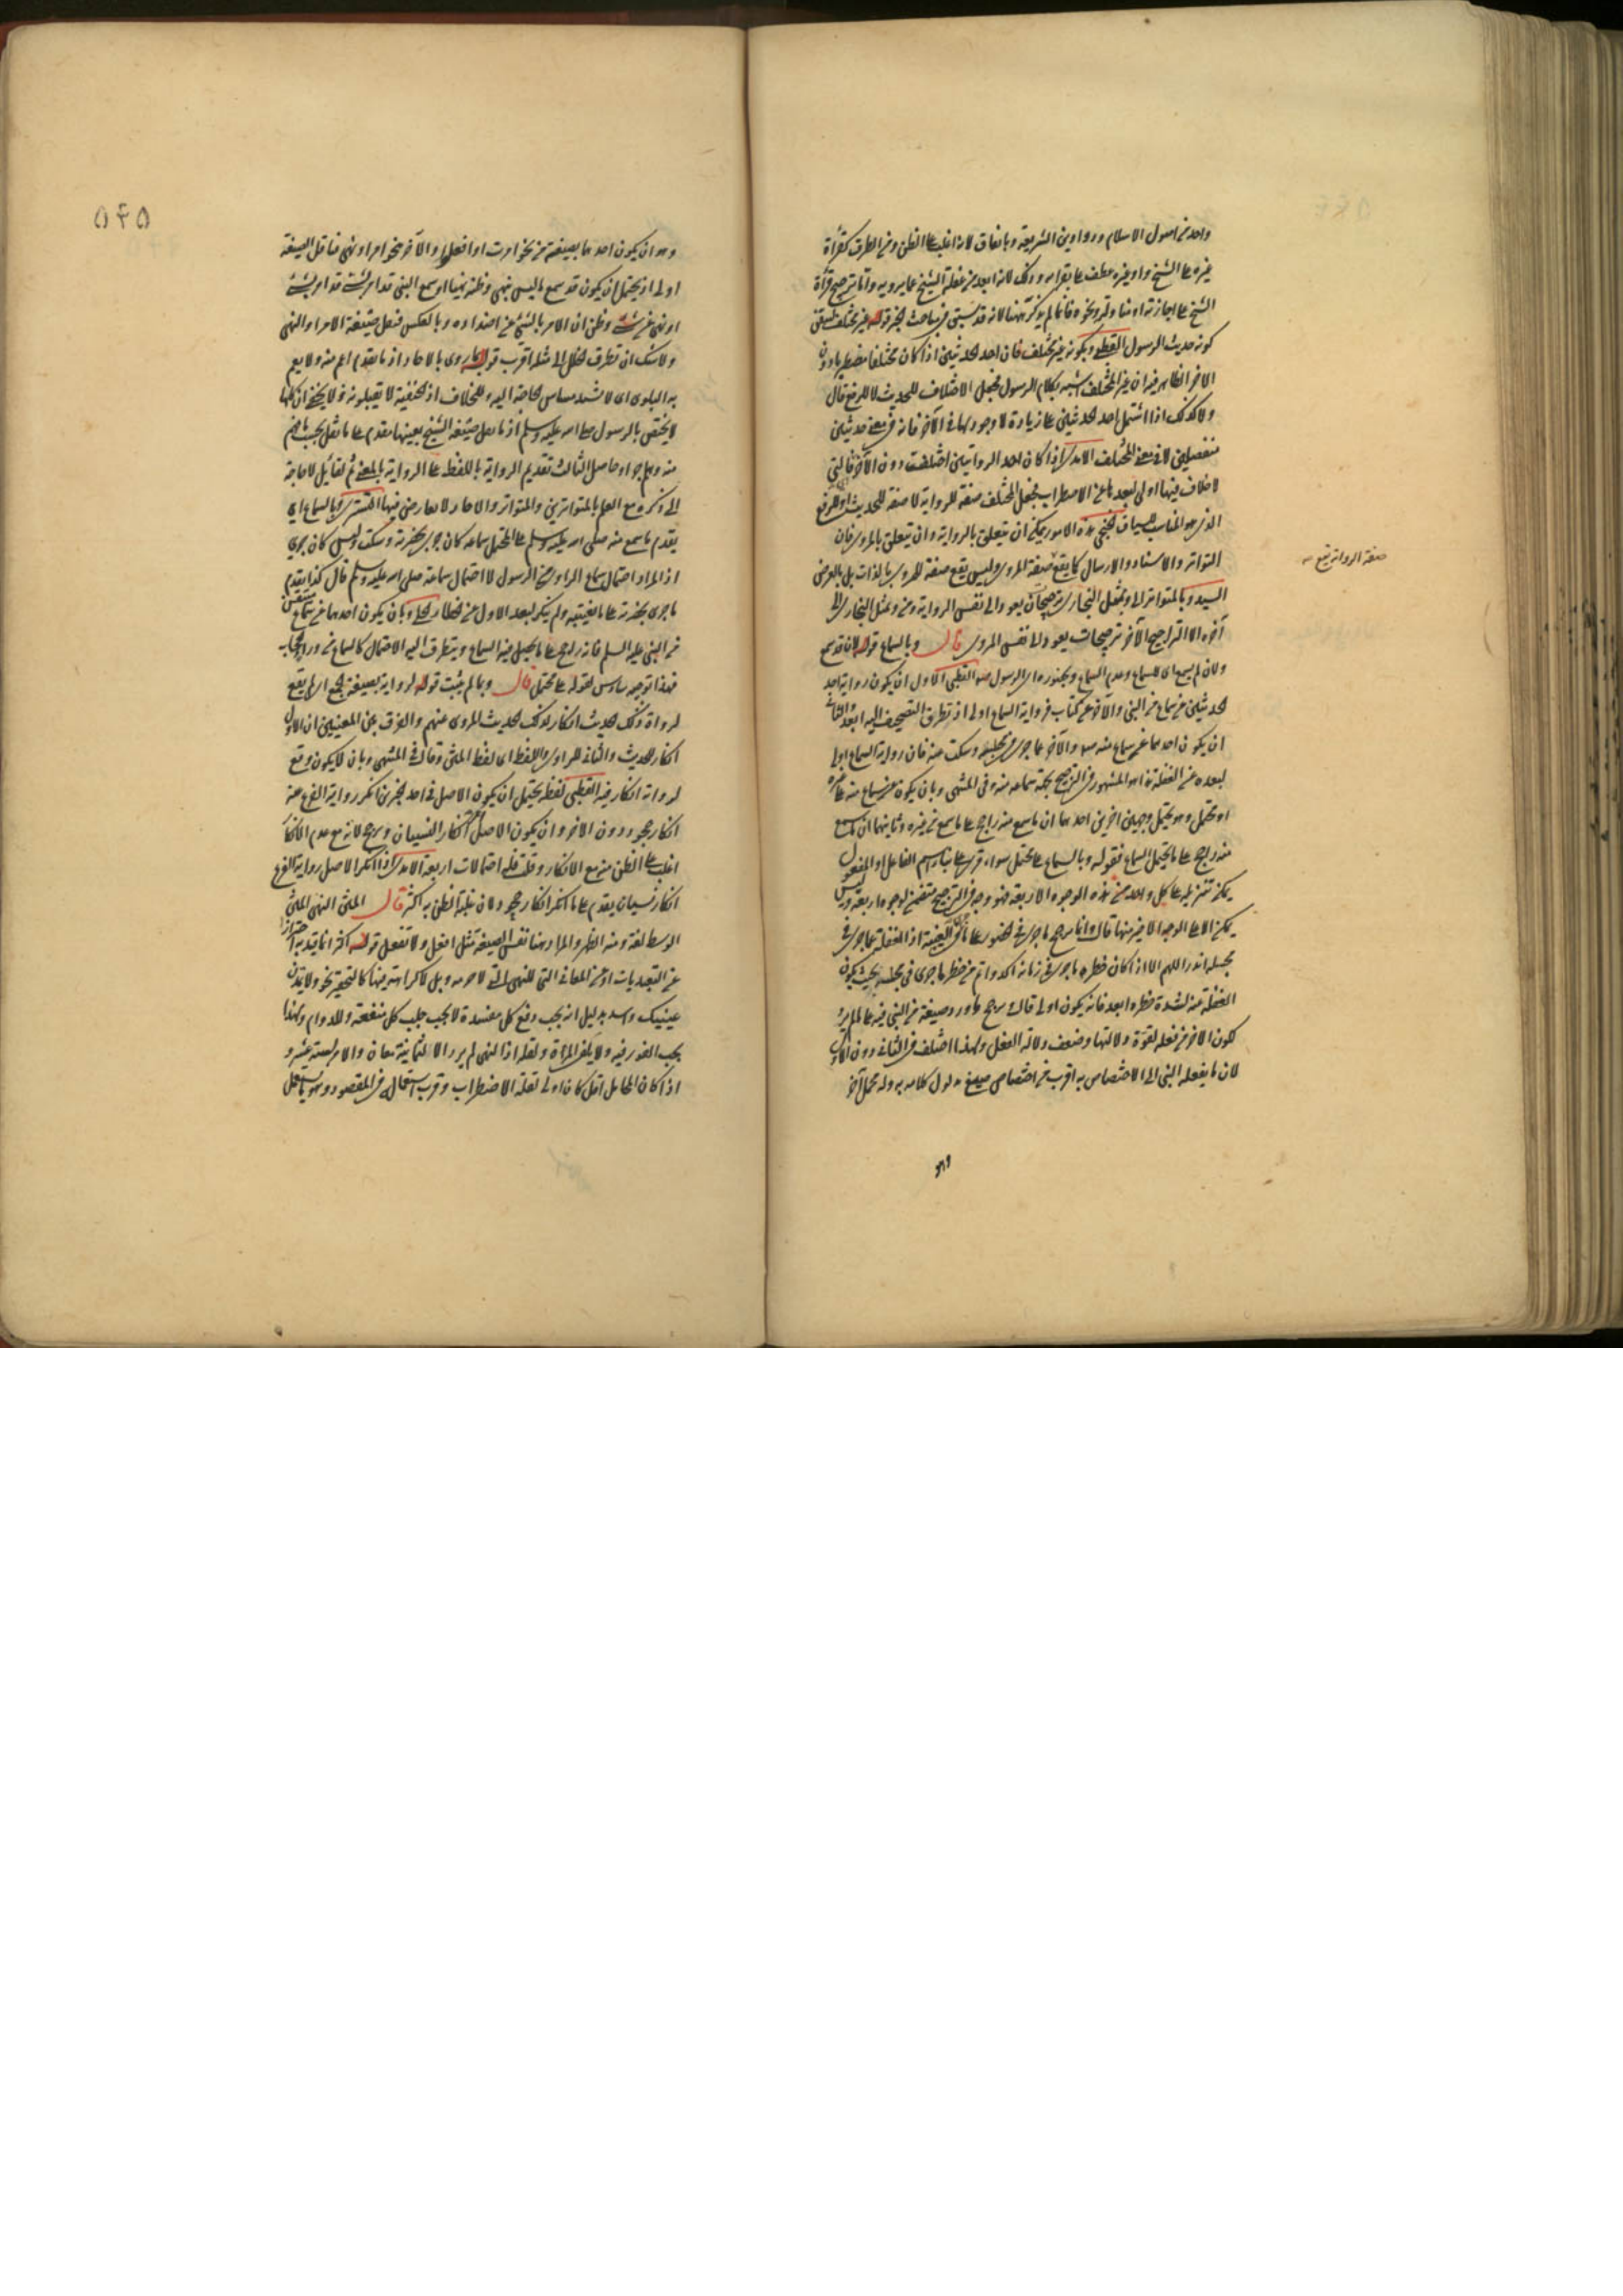 واحد من اصول الاسلام ودواوين الشريعة وباتفاق لانه اغلب على الظن ومن الطرق كقراءة
غيره على الشيخ واو غيره عطف على بقراءه وذلك لانه ابعد من غفلة الشيخ عما يرويه واما ترجيح قراءة
الشيخ على اجازته او مناولته ونحوه فانما لم يذكر ههنا لانه قد سبق في مباحث الخبر قوله غير مختلف
كونه حديث الرسول القطبي وبكونه غير مختلف فان احد الحديثين اذا كان مختلفا مضطربا دون
الاخر الظاهر فيه ان غير المختلف اشبه بكلام الرسول فجعل الاختلاف للحديث لا للرفع قال
ولا كذلك اذا اشتمل احد الحديثين على زيادة لا وجود لها في الآخر فانه في معنى حديثين
منفصلين لا في معنى المختلف الامدي اذا كان احد الروايتين اختلفت دون الآخر فالتي
لا خلاف فيها اولى لبعدها عن الاضطراب فجعل المختلف صفة للرواية لا صفة للحديث او للرفع
الذي هو المناسب لسياق هذه الامور يمكن ان يتعلق بالرواية وان يتعلق بالمروي فان
التواتر والاسناد والارسال كما يقع صفة المروي وليس يقع صفة للمروي بالذات بل بالعرض
صفة الرواية يقع
السيد وبالمتواتر الى وبمثل البخاري ترجيحات يعود الى نفس الرواية ومن ومثل البخاري الى
آخره الا التراجيح الآخر ترجيحات يعود الى نفس المروي قال وبالسماع قوله لانه قد يسمع
ولان لم يسمع اى للسماع وعدم السماع وبحضوره اى الرسول القطبي الاول ان يكون رواية احد
الحديثين عن سماع من النبي والآخر عن كتاب فرواية السماع اولى اذ تطرق التصحيف اليه ابعد والثاني
ان يكون احدهما عن سماع منه والآخر عما جرى في مجلسه وسكت عنه فان رواية السماع اولى
لبعده عن الغفلة هذا هو المشهور في الترجيح بجهة سماعه منه وفي المنتهى وبان يكون عن سماع منه على غيره
او محتمل وهو يحتمل وجهين اخرين احدهما ان ما سمع منه راجح على ما سمع من غيره وثانيهما ان ما سمع
منه راجح على ما يحتمل السماع فقوله وبالسماع على محتمل سواء قرئ على بناء اسم الفاعل او المفعول
يمكن تنزيله على كل واحد من هذه الوجوه الاربعة فهو وجه في الترجيح متضمن لوجوه اربعة وليس
يمكن الا على الوجه الاخير منها قال وانما رجح ما جرى في الحضور على ما في الغيبة اذ الغفلة عما جرى في
مجلسه اندر اللهم الا اذا كان خطره ما جرى في زمانه اكد واتم من خطر ما جرى في مجلسه بحيث يكون
الغفلة عنه لشدة خطره ابعد فانه يكون اولى قال رجح ما ورد وصيغة من النبي فيه على ما لم يرد
لكون الاخر من فعله لقوة دلالتها وضعف دلالة الفعل ولهذا اختلف في الثاني دون الاول
لان ما يفعله النبي الى الاختصاص به اقرب من اختصاص صيغ مدلول كلامه به وله محمل آخر
وهو
٥٤٥
وهو ان يكون احدهما بصيغة من نحو امرت او افعلوا والآخر بنحو امر او نهى فناقل الصيغة
اولى اذ يحتمل ان يكون قد سمع ما ليس بنهي وظنه نهيا او سمع النبي قد امر بشيء
او نهى عن شيء وظن ان الامر بالشيء نهي عن اضداده وبالعكس فنقل صيغة الامر او النهي
ولا شك ان تطرق الخلل الى مثله اقرب قوله ما روي بالاحاد اذ ما يقدم اعم منه ولا يعم
به البلوى اى لا تشتد مساس الحاجة اليه وللخلاف اذ الحنفية لا يقبلونه ولا يخفى ان كلها
لا يختص بالرسول صلى الله عليه وسلم اذ ما نقل صيغة الشيخ بعينها مقدم على ما نقل بحسب ما فهم
منه وهلم جرا وحاصل الثالث تقديم الرواية باللفظ على الرواية بالمعنى ثم لقائل لا حاجة
الى ذكره مع العلم بالمتواترين والمتواتر والاحاد لا تعارض فيها التستري وبالسماع اي
يقدم ما سمع منه صلى الله عليه وسلم على المحتمل سماعه كان جرى بحضرته وسكت وليس كان جرى
اذ المراد احتمال سماع الراوي عن الرسول لا احتمال سماعه صلى الله عليه وسلم قال كذا يقدم
ما جرى بحضرته على ما بغيبته ولم ينكر لبعد الاول عن الخطأ الحلي وبان يكون احدهما عن سماع متيقن
من النبي عليه السلم فانه راجح على ما يحتمل فيه السماع ويتطرق اليه الاحتمال كالسماع من وراء حجاب
فهذا توجيه سادس لقوله على محتمل قال وبما لم يثبت قوله لرواية بصيغة الجمع اى لم يقع
لرواة ذلك الحديث انكار لذلك الحديث المروى عنهم والفرق بين المعنيين ان الاول
انكار للحديث والثاني للراوي واللفظ اى لفظ المتن وقال في المنتهى وبان لا يكون وقع
لرواته انكار فيه القطبي لفظه يحتمل ان يكون الاصل في احد الخبرين انكر رواية الفرع عنه
انكار جحود دون الاخر وان يكون الاصل انكر انكار النسيان ورجح لانه مع عدم الانكار
اغلب على الظن منه مع الانكار وقلت فله احتمالات اربعة الامدي اذا انكر الاصل رواية الفرع
انكار نسيان يقدم على ما انكر انكار جحود لان غلبة الظن به اكثر قال المتن النهى المتن
الوسط لغة ومنه الظهر والمراد هنا نفس الصيغة مثل افعل ولا تفعل قوله اكثر انما قيد به احترازا
عن التعبديات او عن المعاني التي للنهي التي لا حرمة وبل لا كراهة فيها كالتحقير نحو ولا تمدن
عينيك واسد بدليل انه يجب دفع كل مفسدة لا يجب جلب كل منفعة وللدوام ولهذا
يجب الفور فيه ولا يكفي المرة ولقلة اذ النهى لم يرد الا لثمانية معان والامر لستة عشر و
اذا كان المحامل اقل كان اولى لقلة الاضطراب وقرب استعماله في المقصود وهو ما يستعمل